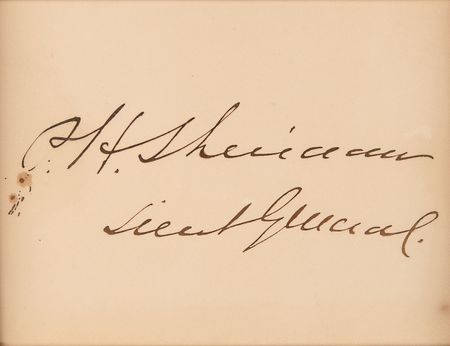 P. H. Sheridan
Lieut General.